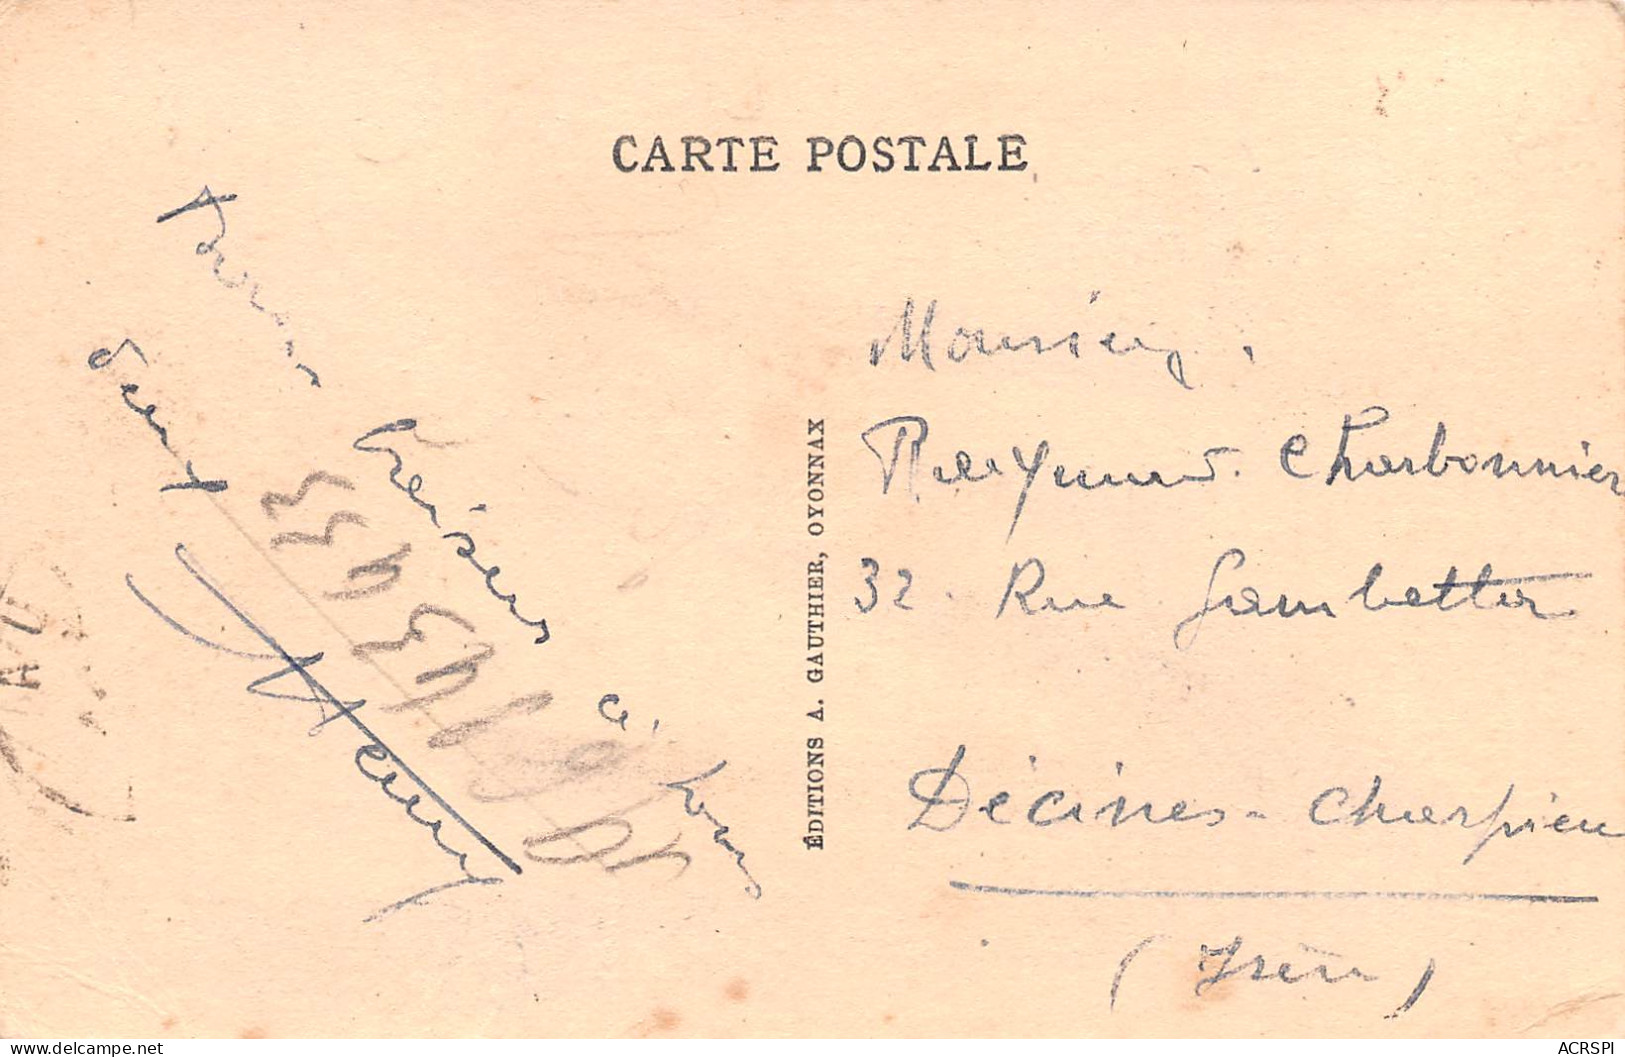 CARTE POSTALE
Bons baisers à tous
deux
ÉDITIONS A. GAUTHIER, OYONNAX
Monsieur
Raymond Charbonnier
32 Rue Gambetta
Décines-Charpieu
(Isère)
delcampe.net
ACRSPI